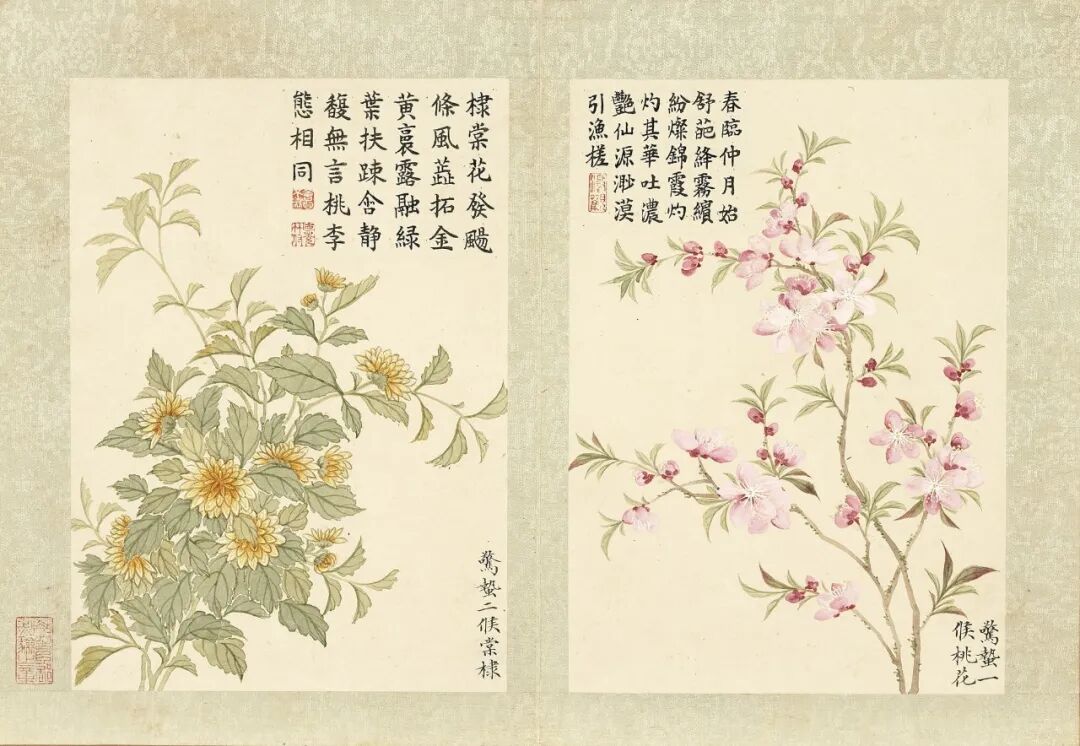 春臨仲月始
舒葩絳霧繽
紛燦錦霞灼
灼其華吐濃
艷仙源渺漠
引漁槎
驚蟄一
候桃花
棣棠花發颺
條風蕋拓金
黃裛露融緑
葉扶踈含静
馥無言桃李
態相同
驚蟄二候棠棣